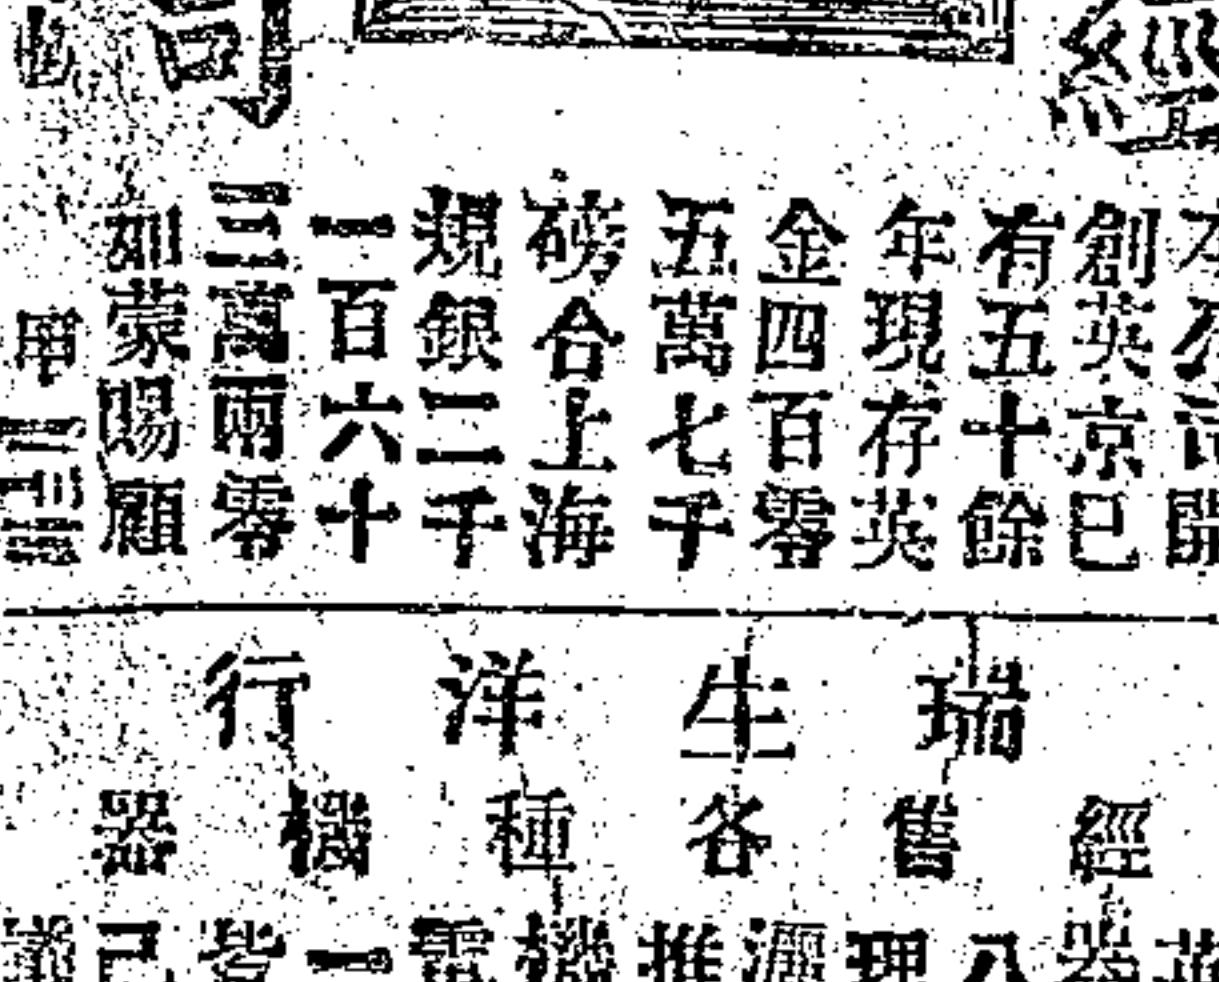 經
司
本公司開
創英京已
有五十餘
年現存英
金四百零
五萬七千
磅合上海
規銀二千
一百六十
三萬兩零
如蒙賜顧
瑞生洋行
經售各種機器
英
器
八
理
灑
推
機
電
一
已